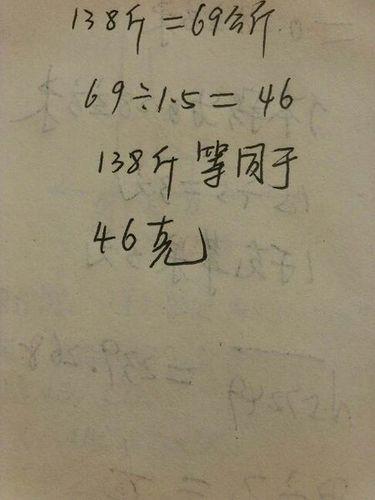 138斤=69公斤
69÷1.5=46
138斤等同于
46克